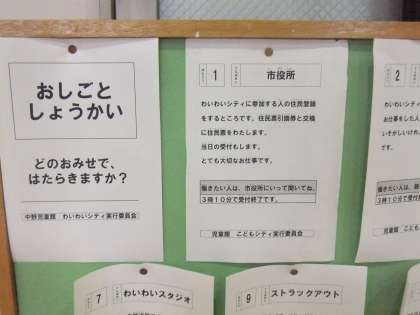 おしごと
しょうかい
どのおみせで、
はたらきますか？
中野児童館　わいわいシティ実行委員会
1
市役所
わいわいシティに参加する人の住民登録
をするところです。住民票引換券と交換
に住民票をわたします。
当日の受付もします。
とても大切なお仕事です。
働きたい人は、市役所にいって聞いてね。
３時１０分で受付終了です。
児童館　こどもシティ実行委員会
2
わいわいシティ
お仕事をした人
いそがしいけれ
働きたい人は、銀
３時１０分で受
7
わいわいスタジオ
9
ストラックアウト